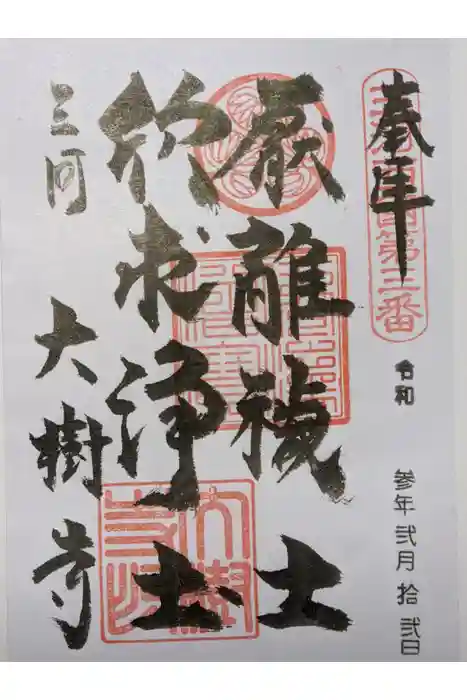 奉拝
第三番
令和 参年 弐月 拾弐日
厭離穢土
欣求浄土
三河
大樹寺